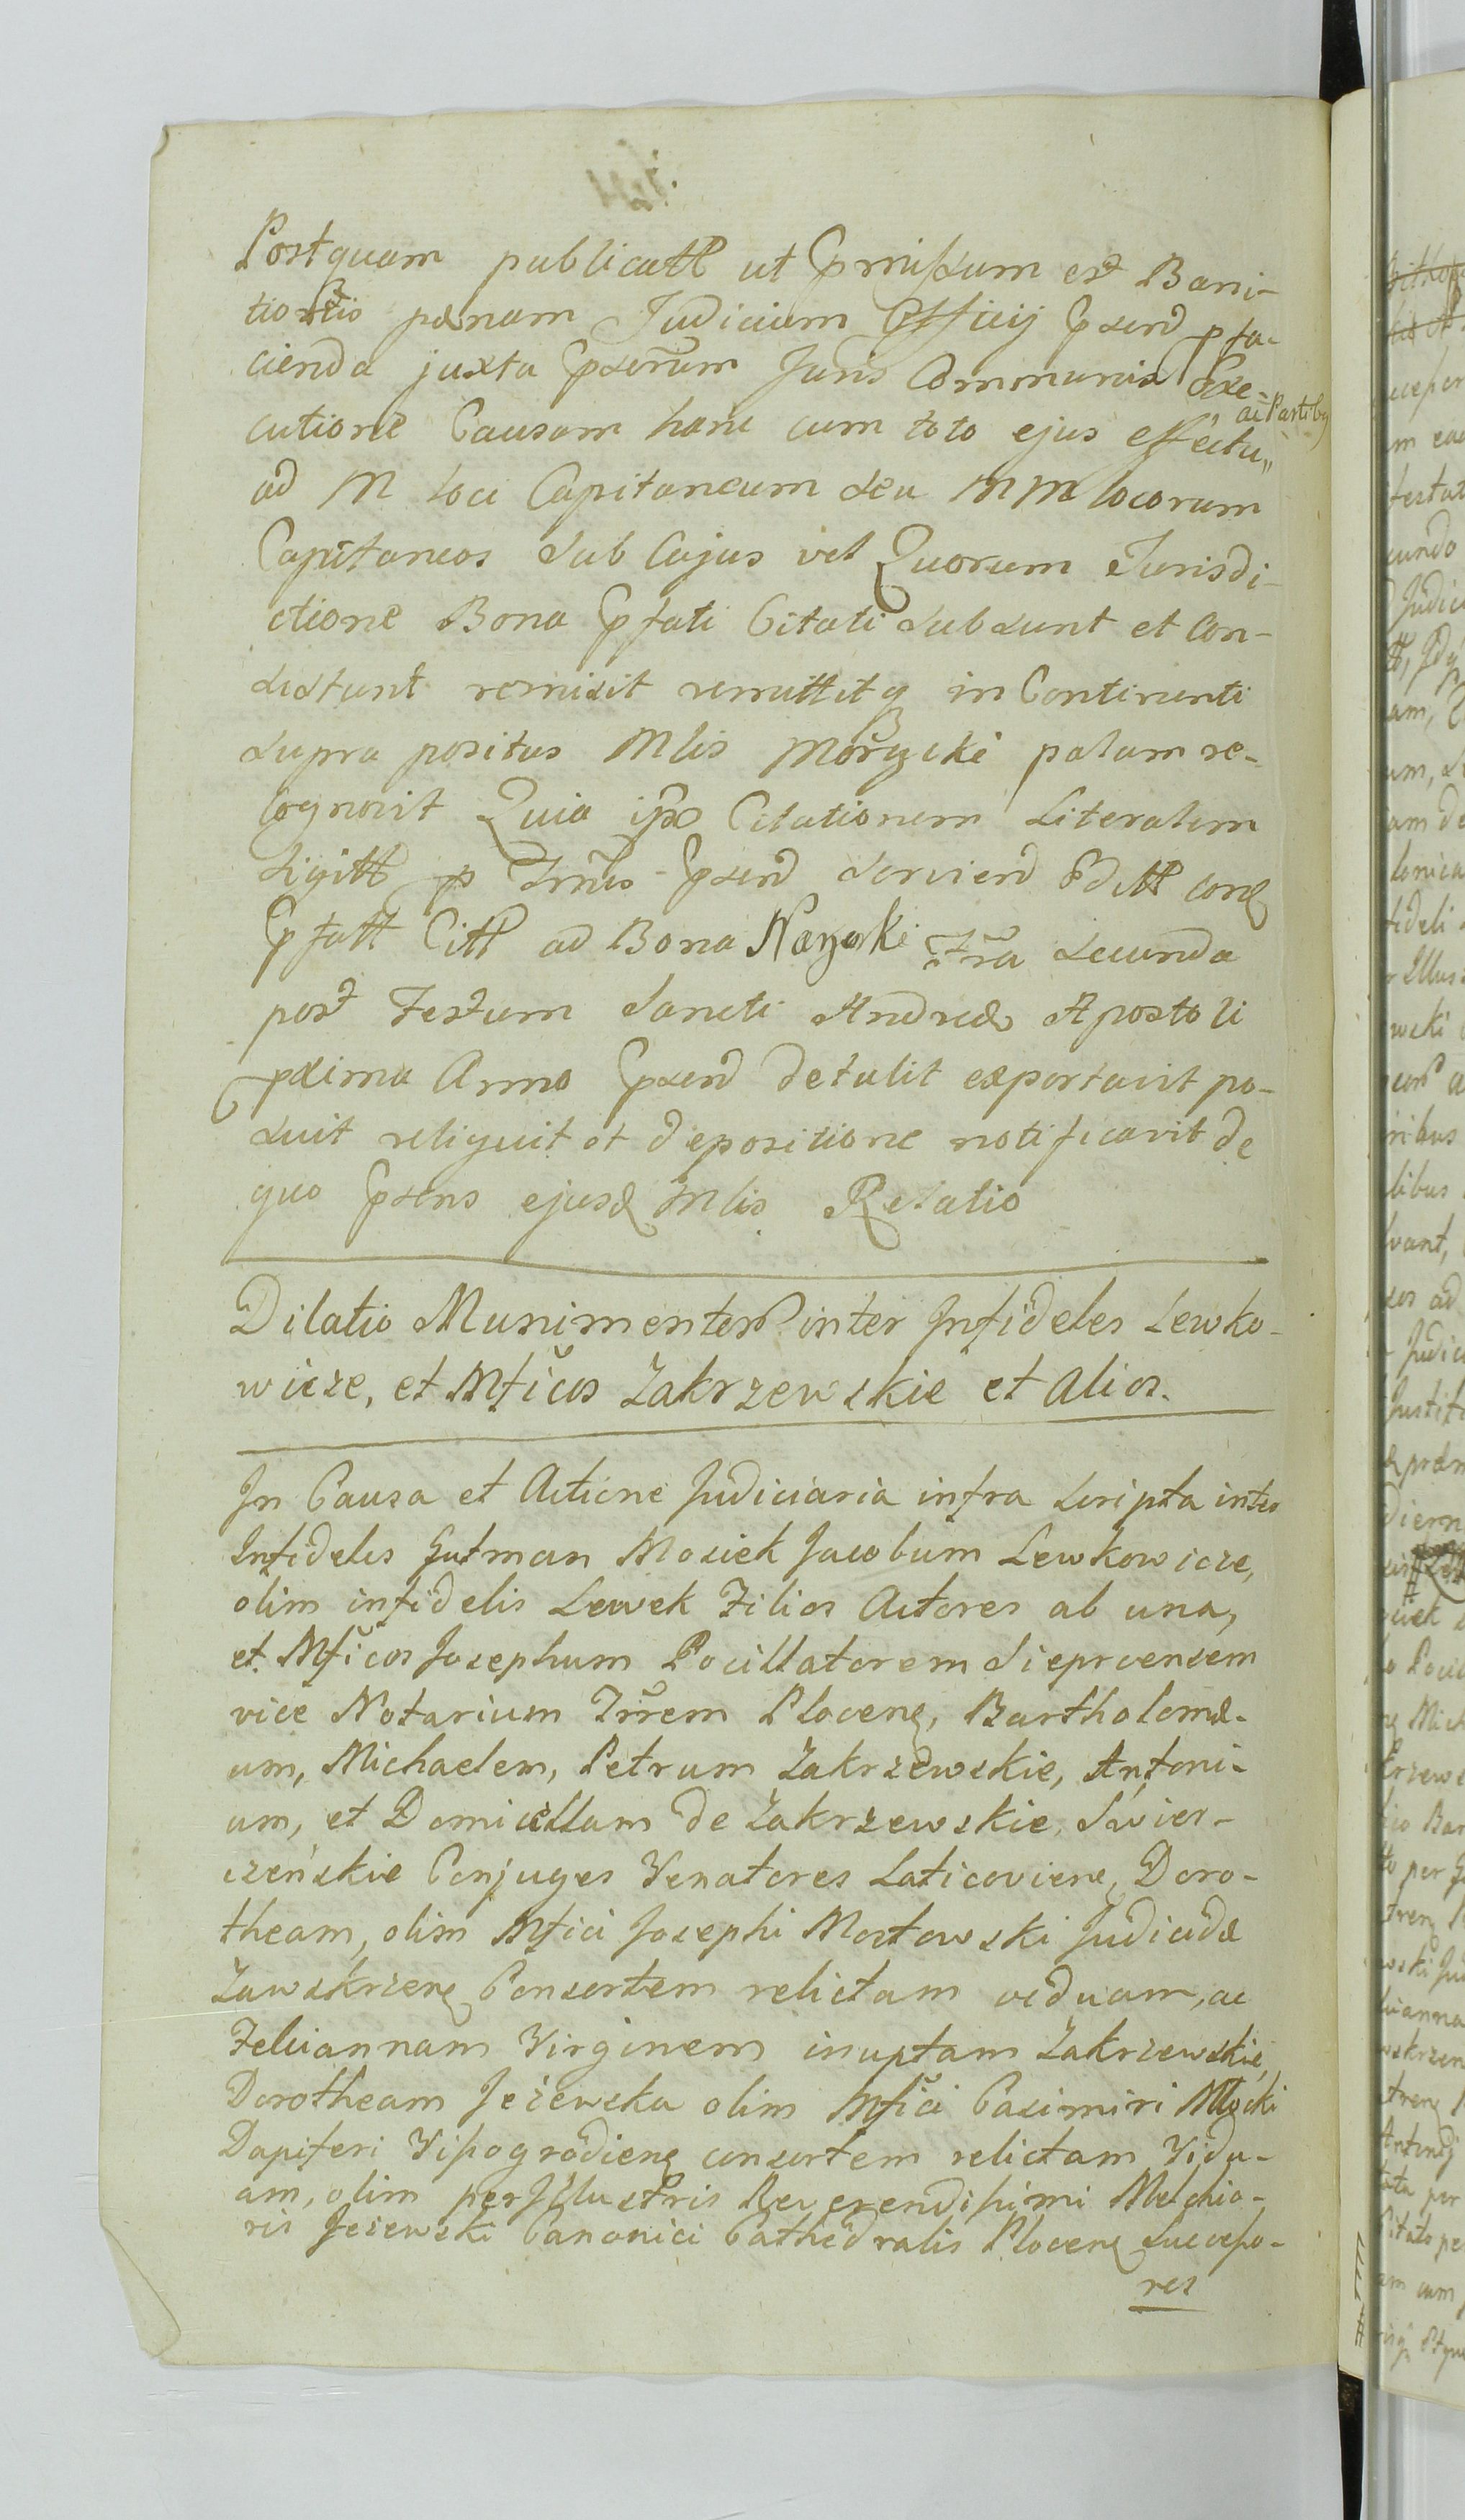 Postquam publicatt ut Ꝓmissum est Bani-
tionis pænam Judicium Officij Ꝓsend p fa-
cienda juxta Ꝓsentium Juris Communis Exe-
cutione Causam hanc cum toto ejus effectu,,
ac Partibq
ad M loci Capitaneum seu MM locorum
Capitaneos sub Cujus vel Quorum Jurisdi-
ctione Bona Ꝓfati Citati subsunt et Con-
sistunt remisit remittitq in Continenti
supra positus Mlis Morzycki palam re-
cognovit Quia ipse Citationem Literalem
Sigitt p Ꝓsend Serviend
Ꝓfatt Citt ad Bona Nazarki Fria Secunda
post Festum Sancti Andreæ Apostoli
pxima Anno Ꝓsend detulit exportavit po-
suit reliquit et depositione notificavit de
quo Ꝓsens ejusd Mlis Relatio
Dilatio Munimentor inter Infideles Lewko-
wicze, et Mficos Zakrzewskie et Alios.
In Causa et Actione Judiciaria infra Scripta inter
Infideles Gutman Mosiek Jacobum Lewkowicze,
olim infidelis Lewek Filios Actores ab una,
et Mficos Josephum Pocillatorem Sieprcensem
vice Notarium Trrem Plocens, Bartholomæ-
um, Michaelem, Petrum Zakrzewskie, Antoni-
um, et Domicellam de Zakrzewskie, Swier-
czeńskie Conjuges Venatores Laticoviens, Doro-
theam, olim Mfici Josephi Mostowski Judicidæ
Zawskrzens Consortem relictam viduam, ac
Feliciannam Virginem inuptam Zakrzewskie,
Dorotheam Jeżewska olim Mfici Casimiri Młocki
Dapiferi Vissogrodiens consortem relictam Vidu-
am, olim perIllustris Reverendissimi Melchio-
ris Jeżewski Canonici Cathedralis Plocens Successo-
res